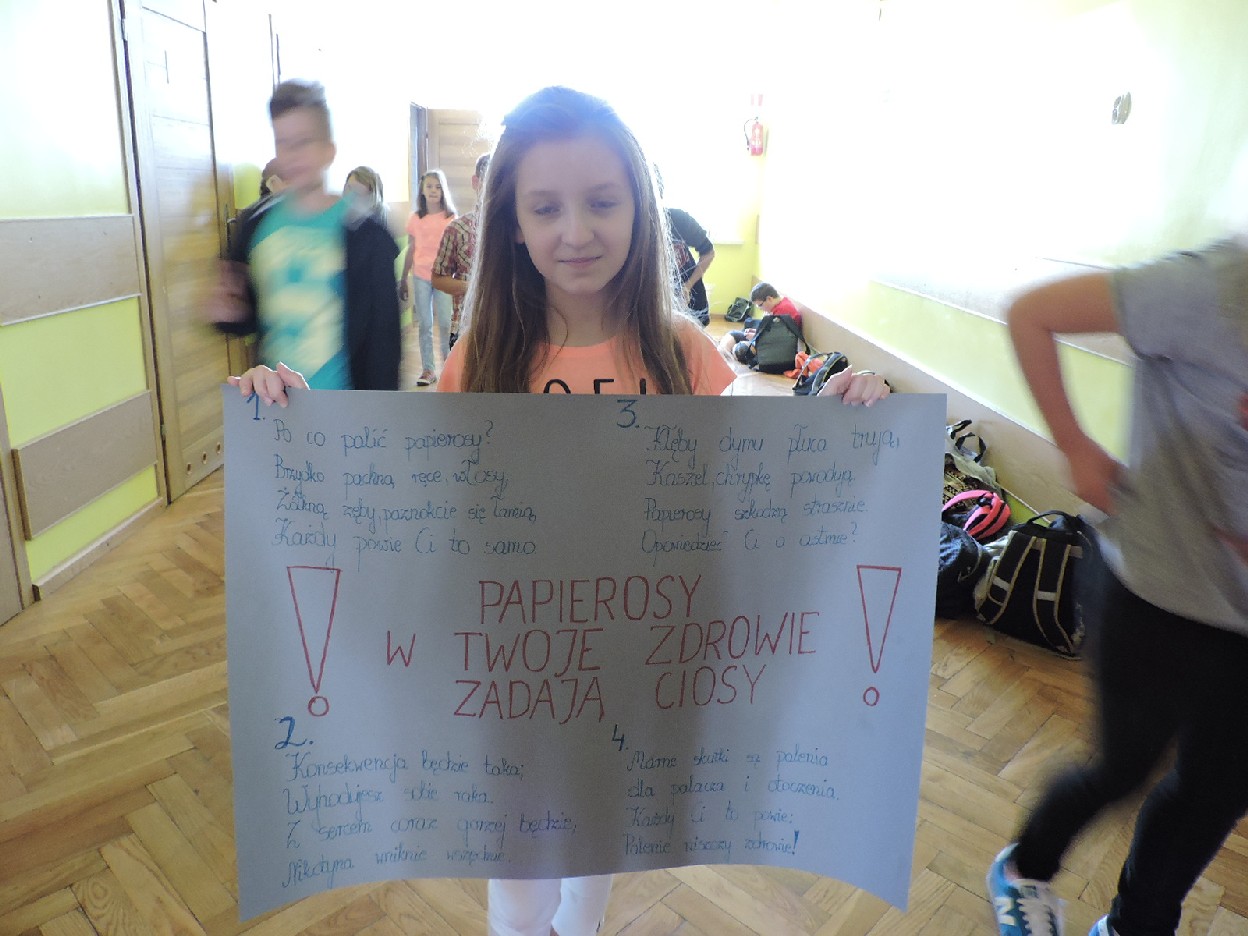 1.
Po co palić papierosy?
Brzydko pachną ręce, włosy,
Żółkną zęby, paznokcie się łamią,
Każdy powie Ci to samo
3.
Kłęby dymu płuca trują,
Kaszel, chrypkę powodują.
Papierosy szkodzą strasznie.
Opowiedzieć Ci o astmie?
! PAPIEROSY !
W TWOJE ZDROWIE
ZADAJĄ CIOSY
2.
Konsekwencja będzie taka;
Wyhodujesz sobie raka.
Z sercem coraz gorzej będzie,
Nikotyna wniknie wszędzie.
4.
Marne skutki są palenia
dla palacza i otoczenia.
Każdy Ci to powie:
Palenie niszczy zdrowie!
N